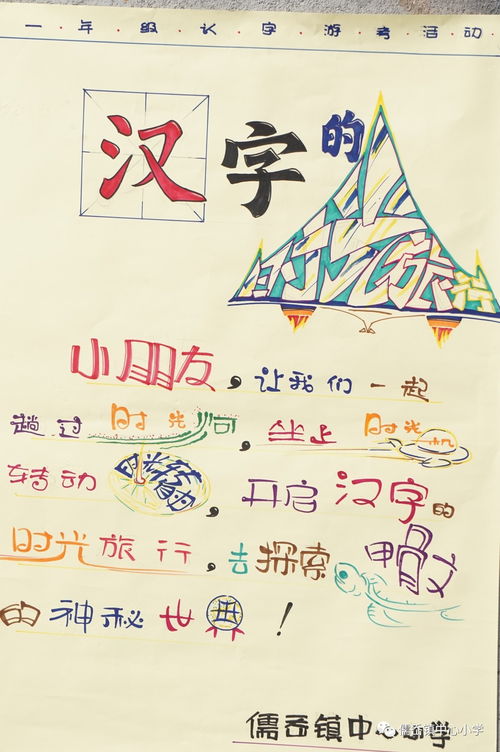 一·年·级·认·字·游·考·活·动
汉字的时光旅行
小朋友，让我们一起
趟过时光河，坐上时光机
转动时光转盘，开启汉字的
时光旅行，去探索甲骨文
的神秘世界！
儒岙镇中心小学
儒岙镇中心小学